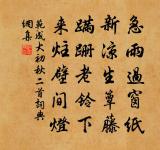 急雨過窗紙
新涼生簟藤
蹣跚老鈴下
来炷壁間燈
範成大初秋二首詞典
網集